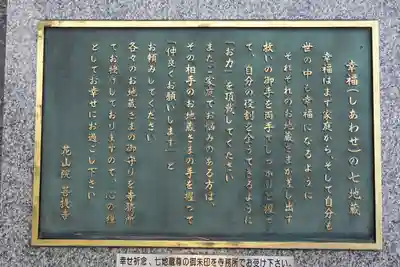 幸福(しあわせ)の七地蔵
幸福はまず家庭から、そして自分も
世の中も幸福になるように
それぞれのお地蔵さまが差し出す
救いの御手を両手でしっかりと握っ
て、自分の役割を全うできるように
「お力」を頂戴してください
また、ご家庭でお悩みのある方は、
その相手のお地蔵さまの手を握って
「仲良くお願いします」と
お頼みしてください
各々のお地蔵さまの御守りを寺務所
にてお授けしておりますので、心の糧
としてお幸せにお過ごし下さい
花山院 菩提寺
幸せ祈念、七地蔵尊の御朱印を寺務所でお受け下さい。